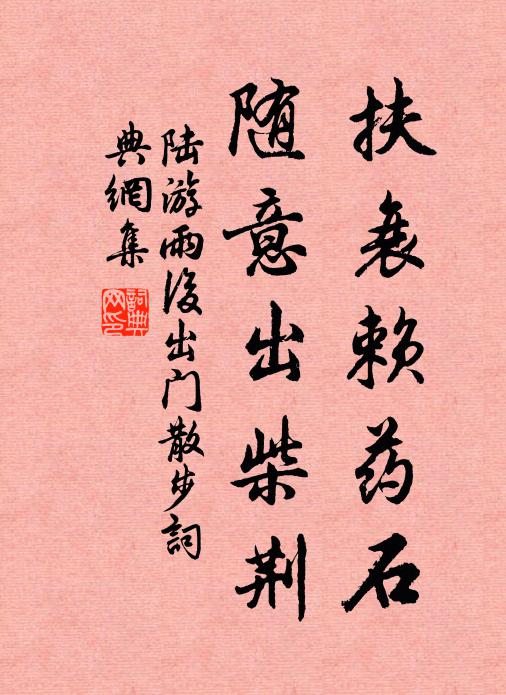 扶衰赖药石
随意出柴荆
陆游雨後出门散步詞
典網集
詞典网印